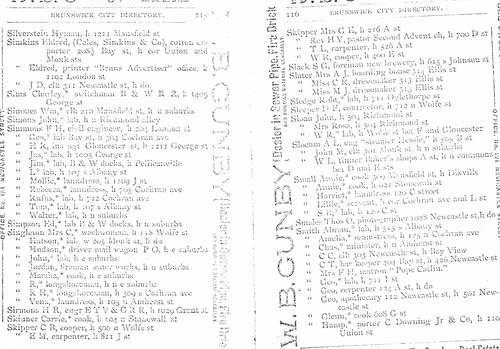 BRUNSWICK CITY DIRECTORY. 115
Silverstein Hyman, h 1211 Mansfield st
Simkins Eldred, (Coles, Simkins & Co), cotton ex-
porter 208½ Bay st, h cor Union and
Monk sts
" Eldred, printer "Bruns Advertiser" office, h
1102 London st
" J D, clk 311 Newcastle st, h do
Sims Charley,* switchman B & W R R, h 1009
George st
Simmes Wm,* clk 210 Mansfield st, h n suburbs
Simons John,* lab, h n Richmond alley
Simmons F H, civil engineer, h 204 London st
" Geo,* lab Bay st, h 504 Cochran ave
" H R, ins agt Gloucester st, h 1211 George st
" Jas,* lab, h 1005 George st
" Jim,* lab, B & W docks, h Pellicanville
" L* lab, h 507 s Albany st
" Mollie,* laundress, h 1109 J st
" Rebecca,* laundress, h 705 Cochran ave
" Rufus,* lab, h 712 Cochran ave
" Tom,* lab, h 507 s Albany st
" Walter,* lab, h n suburbs
Simpson Ed,* lab B & W docks, h n suburbs
Singleton Mrs C,* washwoman, h 118 Wolfe st
" Hatson,* lab, w 205 Monk st, h do
" Hudson,* driver mail wagon P O, h e suburbs
" John,* lab, h e suburbs
" Jordan, fireman water works, h n suburbs
" Martha,* cook, h e suburbs
" R,* longshoreman, h n e suburbs
" R H,* longshoreman, h 309 s Cochran ave
" Vena,* laundress, h 105 n Amherst st
Sirmons H R, engr E T V & G R R, h 1009 Grant st
Skinner Carrie,* cook, h 104 n Stonewall st
Skipper C B, cooper, h 500 n Wolfe st
" E M, carpenter, h 811 J st
W. B. GUNBY
116 BRUNSWICK CITY DIRECTORY.
Skipper Mrs C E, h 216 A st
" Rev H V, pastor Second Advent ch, h 700 D st
" T L, carpenter, h 526 A st
" W R, cooper, h 400 E st
Slack S G, foreman new brewery, h 615 s Johnson st
Slater Mrs A J, boarding house 314 Ellis st
" Miss C R, dressmaker 313 Ellis st
" Miss M J, dressmaker 313 Ellis st
Sledge Robt,* lab, h 711 Oglethorpe st
Sleeper J F, contractor, h 712 n Wolfe st
Sloan John, h 503 Richmond st
" Mrs Rosa, h 504 Richmond st
" W R,* lab, h Wolfe st bet F and Gloucester
Slocum A L, eng "steamer Jessie," h 509 B st
" John M, clk 301 Monk st, h n suburbs
" W L, tinner Baker's shops A st, h n commons
bet D and E sts
Small Annie,* cook 305 Mansfield st, h Dixville
" Annie,* cook, h 621 Stonewall st
" Harriet,* laundress 120 C street
" Lillie,* servant, h cor Cochran ave and L st
" S B,* lab, h 120 C st
Smiler Thos O, photographer 102½ Newcastle st, h do
Smith Abram,* lab, h 515 s Albany st
" Amelia,* seamstress, h 125 n Cochran ave
" Chas,* minister, h n Amherst st
" C C, clk 303 Newcastle st, h Bay View
" C T, bar keeper 204 Bay st, h 426 Newcastle st
" Mrs F H, matron "Pope Catlin."
" Geo,* lab, h 711 I st
" Geo, carpenter 114 A st, h do
" Geo, apothecary 112 Newcastle st, h 501 New-
castle st
" Glenn,* cook 608 G st
" Hamp,* porter C Downing Jr & Co, h 110
Union st
W. B. GUNBY
Dealer in Sewer Pipe, Fire Brick